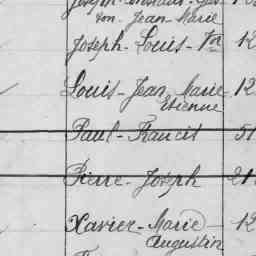 ton Jean Marie
Joseph-Louis- 12
Louis-Jean Marie- 12
Etienne
Paul-Francis 51
Pierre-Joseph 21
Xavier-Marie- 12
Augustin